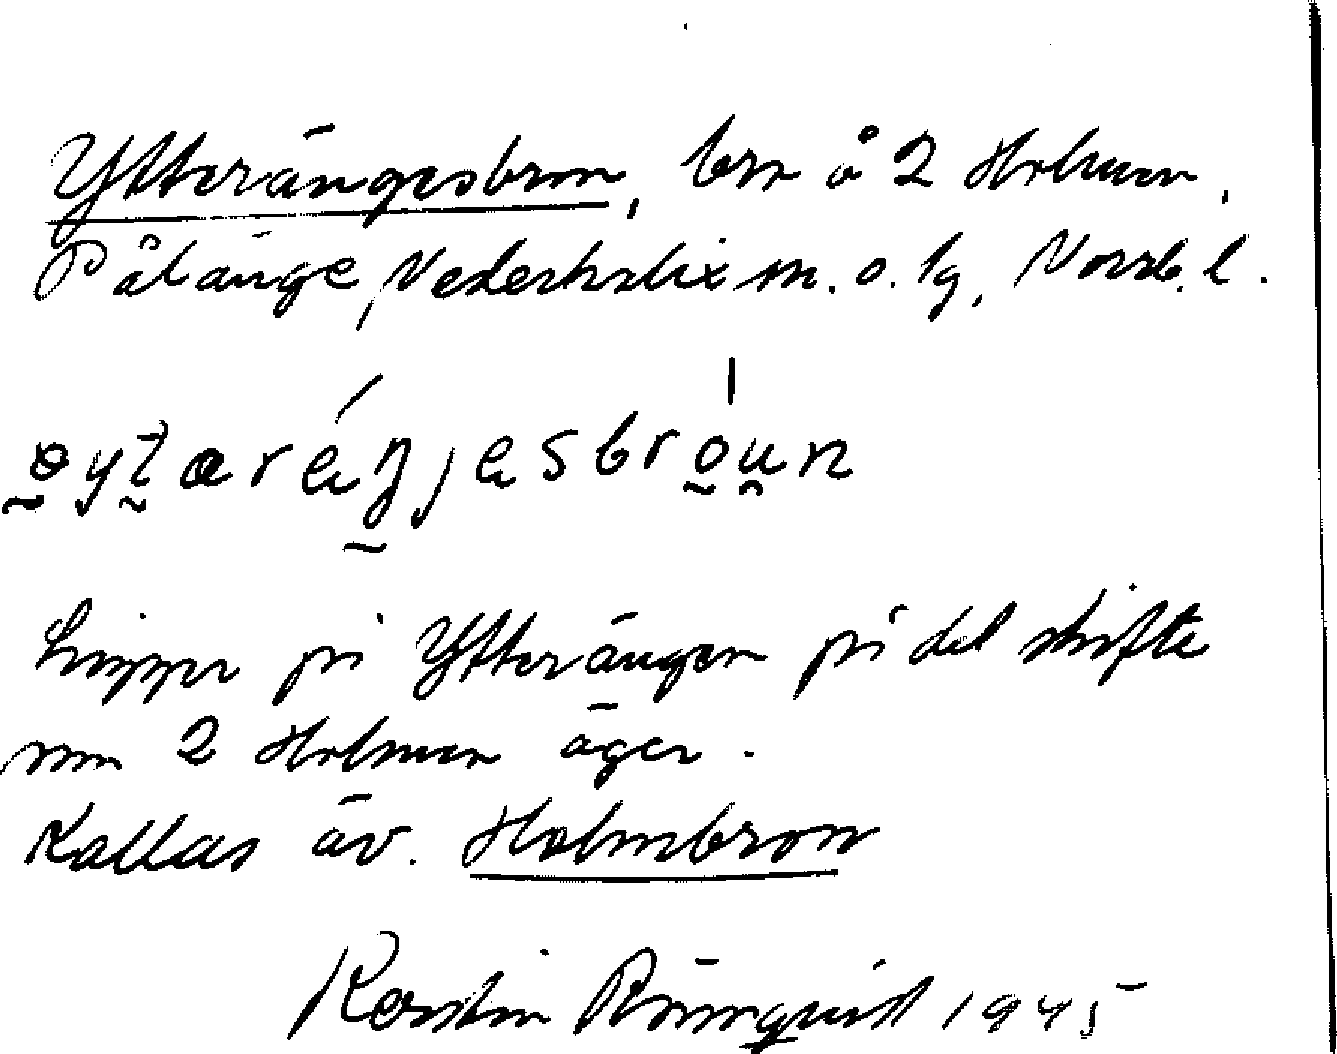 Ytterängesbron, bro å 2 Holmen,
Pålänge, Nederkalix sn. o. tg, Norrb. l.
øytaréŋjesbróun
Ligger på Ytterängen på det skifte
som 2 Holmen äger.
Kallas äv. Holmbron
Kerstin Rönnquist 1945